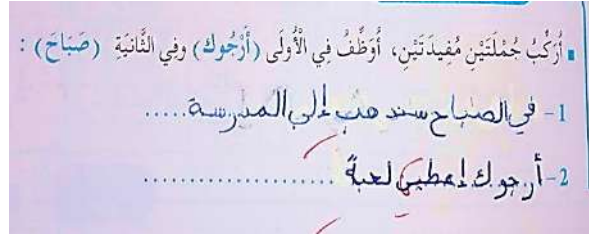 أُرَكِّبُ جُمْلَتَيْنِ مُفِيدَتَيْنِ، أُوَظِّفُ فِي الْأُولَى (أَرْجُوك) وفِي الثَّانيَةِ (صَبَاحَ) :
1- في الصباح سند هب إلى المدرسة.....
2- أرجوك إعطيني لعبةً ....................